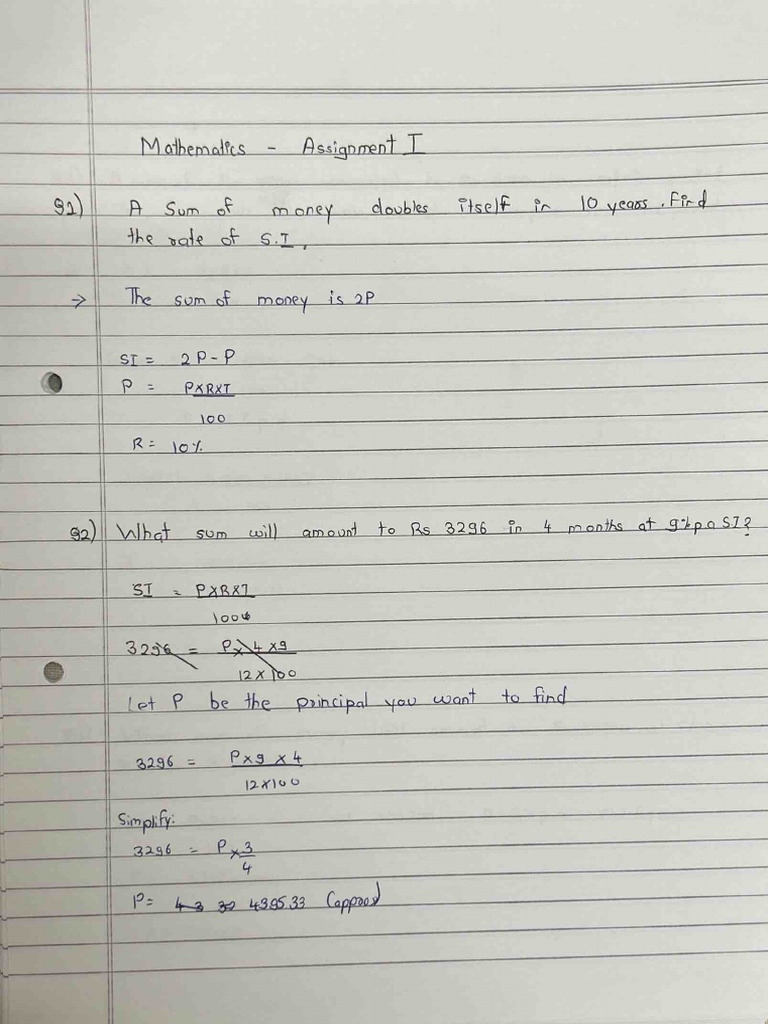 Mathematics - Assignment I
Q1) A Sum of money doubles itself in 10 years. Find
the rate of S.I.
→ The sum of money is 2P
SI = 2P-P
P = PXRXT
100
R = 10%
Q2) What sum will amount to Rs 3296 in 4 months at 9% p a SI?
SI = PXRXT
100
3296 = Px 4 x9
12 x 100
Let P be the principal you want to find
3296 = Px9 x 4
12x100
Simplify:
3296 = P x 3
4
P = 4395.33 (approx)